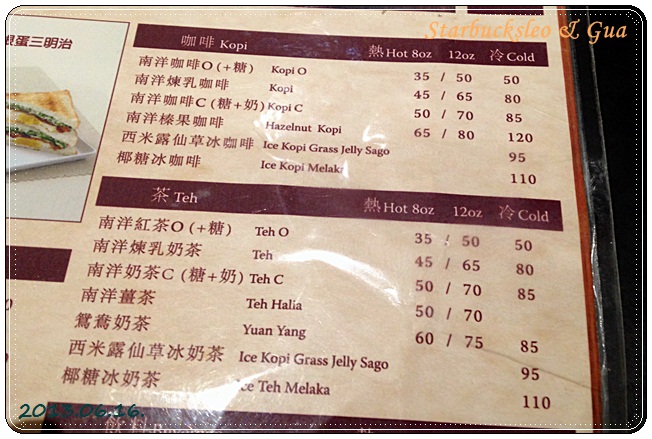 Starbucksleo & Gua
蛋三明治
咖啡 Kopi 熱 Hot 8oz 12oz 冷 Cold
南洋咖啡O (+糖) Kopi O 35 / 50 50
南洋煉乳咖啡 Kopi 45 / 65 80
南洋咖啡C (糖+奶) Kopi C 50 / 70 85
南洋榛果咖啡 Hazelnut Kopi 65 / 80 120
西米露仙草冰咖啡 Ice Kopi Grass Jelly Sago 95
椰糖冰咖啡 Ice Kopi Melaka 110
茶 Teh 熱 Hot 8oz 12oz 冷 Cold
南洋紅茶O (+糖) Teh O 35 / 50 50
南洋煉乳奶茶 Teh 45 / 65 80
南洋奶茶C (糖+奶) Teh C 50 / 70 85
南洋薑茶 Teh Halia 50 / 70
鴛鴦奶茶 Yuan Yang 60 / 75 85
西米露仙草冰奶茶 Ice Kopi Grass Jelly Sago 95
椰糖冰奶茶 Ice Teh Melaka 110
2013.06.16.